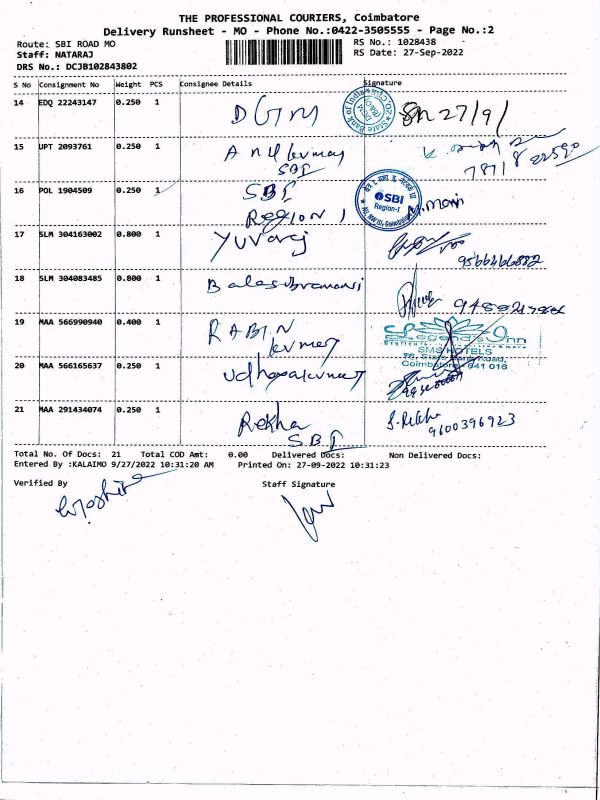 THE PROFESSIONAL COURIERS, Coimbatore
Delivery Runsheet - MO - Phone No.:0422-3505555 - Page No.:2
Route: SBI ROAD MO
RS No.: 1028438
Staff: NATARAJ
RS Date: 27-Sep-2022
DRS No.: DCJB102843802
S No Consignment No Weight PCS Consignee Details Signature
14 EDQ 22243147 0.250 1 DGM 27/9/
State Bank of India
15 UPT 2093761 0.250 1
SBI
16 POL 1904509 0.250 1 SBI
REGION 1
SBI
Region-I
M. Mani
17 SLM 304163002 0.800 1 Yuvaraj
9566466882
18 SLM 304083485 0.800 1 Balasubramani
19 MAA 566990940 0.400 1 RABIN
Legend's Inn
SMS HOTELS
Road,
Coimbatore 641 016
20 MAA 566165637 0.250 1
21 MAA 291434074 0.250 1 Rekha
SBI
S. Rekha
9600396923
Total No. Of Docs: 21 Total COD Amt: 0.00 Delivered Docs: Non Delivered Docs:
Entered By :KALAIMO 9/27/2022 10:31:20 AM Printed On: 27-09-2022 10:31:23
Verified By Staff Signature